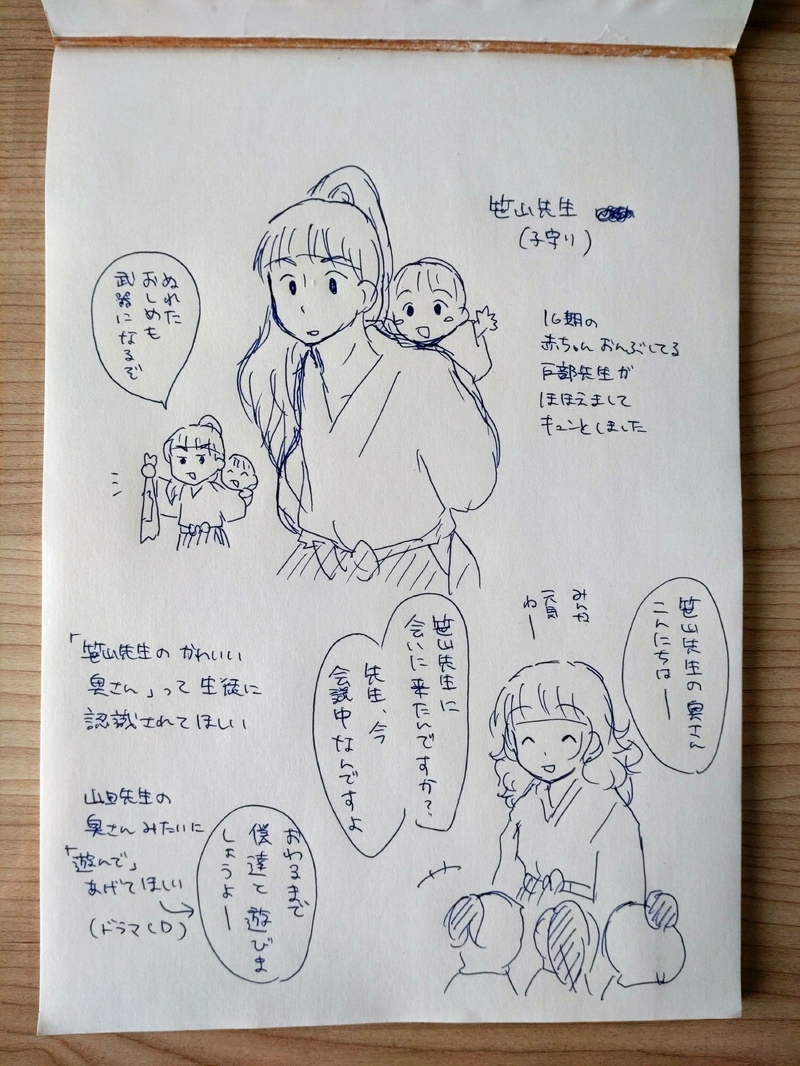 笹山先生
(子守り)
16期の
赤ちゃんおんぶしてる
戸部先生が
ほほえまして
キュンとしました
ぬれた
おしめも
武器になるぞ
笹山先生の奥さん
こんにちはー
みんな
元気
ねー
笹山先生に
会いに来たんですか?
先生、今
会議中なんですよ
「笹山先生のかわいい
奥さん」って生徒に
認識されてほしい
山田先生の
奥さんみたいに
「遊んで」
あげてほしい
(ドラマCD)
おわるまで
僕達と遊びま
しょうよー